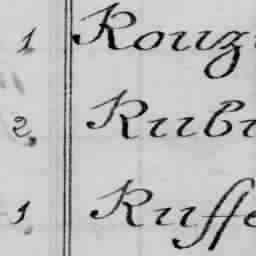 1 Rouzi
2. Rubi
1. Ruffe